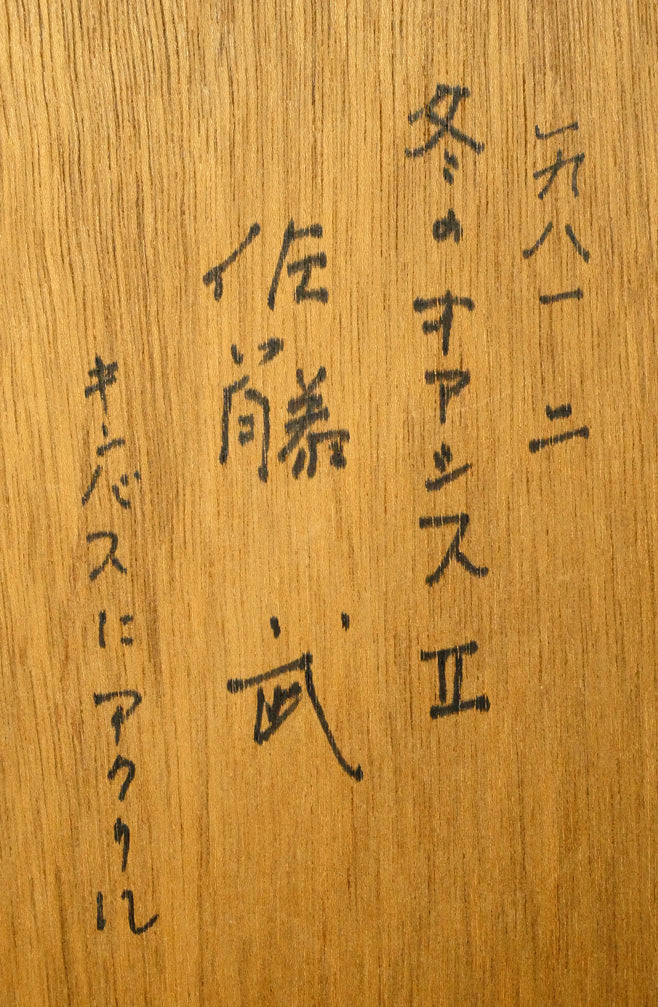 一九八一 二
冬のオアシス Ⅱ
佐藤 武
キャンバスにアクリル